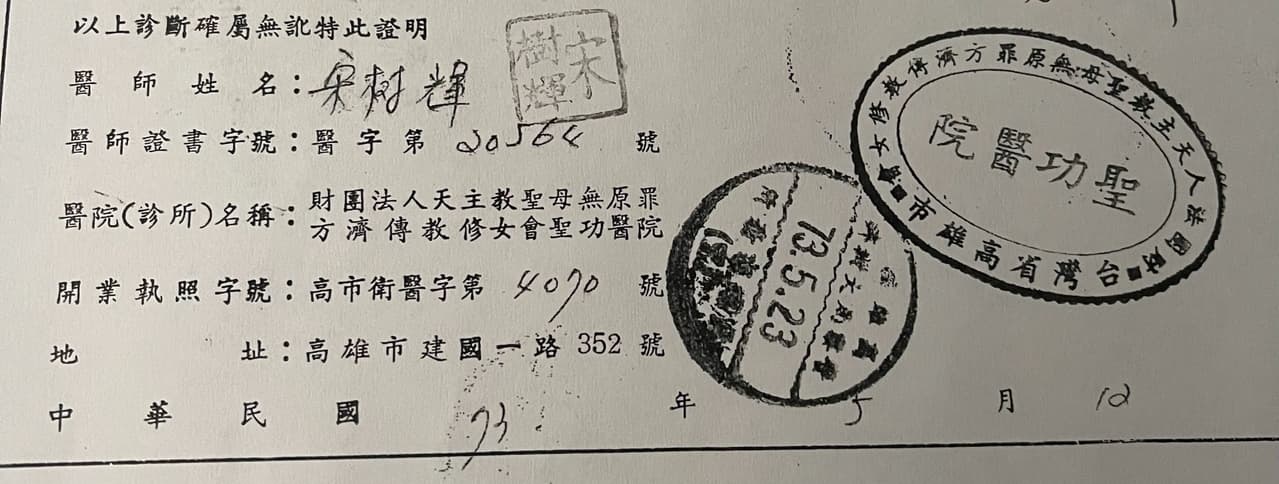 以上診斷確屬無訛特此證明
醫師姓名：宋樹輝
宋樹輝
醫師證書字號：醫字第 20564 號
醫院(診所)名稱：財團法人天主教聖母無原罪
方濟傳教修女會聖功醫院
開業執照字號：高市衛醫字第 4070 號
地址：高雄市建國一路 352 號
中華民國 73 年 5 月 12
財團法人天主教聖母無原罪方濟傳教修女會
聖功醫院
台灣省高雄市
73.5.23